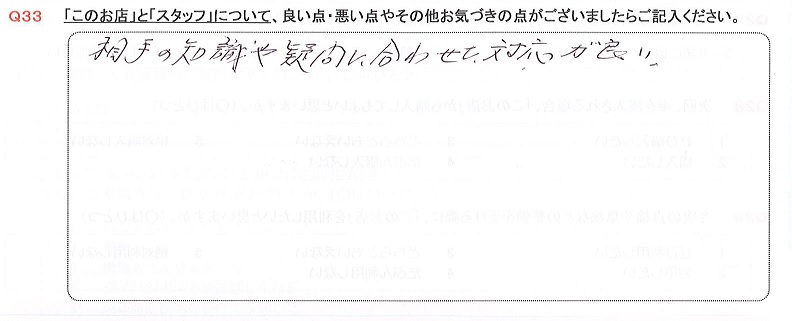 Q33 「このお店」と「スタッフ」について、良い点・悪い点やその他お気づきの点がございましたらご記入ください。
相手の知識や疑問に合わせた対応が良い